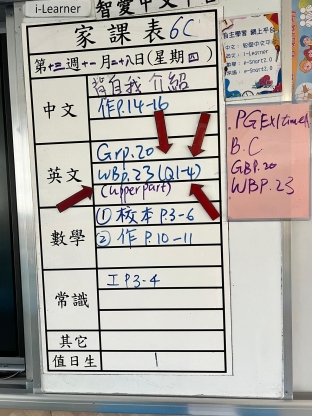 i-Learner
智愛中文平台
家課表 6C
第十三週十一月二十八日(星期四)
中文
背自我介紹
作P.14-16
英文
Grp.20
WBp.23(Q1-4)
(upperpart)
數學
① 校本 P.3-6
② 作 P.10-11
常識
工P.3-4
其它
值日生
1
自主學習 網上平台
PGEx1time1
B.C
GBp.20
WBp.23